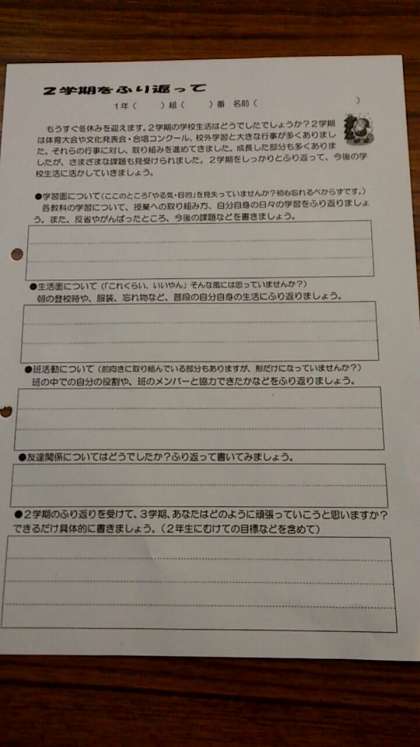 2学期をふり返って
1年（　　）組（　　）番　名前（　　　　　　　　）
もうすぐ冬休みを迎えます。2学期の学校生活はどうでしたでしょうか？2学期
は体育大会や文化発表会・合唱コンクール、校外学習と大きな行事が多くありまし
た。それらの行事に対し、取り組みを進めてきました。成長した部分も多くありま
したが、さまざまな課題も見受けられました。2学期をしっかりとふり返って、今後の学
校生活に活かしていきましょう。
●学習面について（ここのところ「やる気・目的」を見失っていませんか？初心忘れるべからずです。）
各教科の学習について、授業への取り組み方、自分自身の日々の学習をふり返りましょ
う。また、反省やがんばったところ、今後の課題などを書きましょう。
●生活面について（「これくらい、いいやん」そんな風には思っていませんか？）
朝の登校時や、服装、忘れ物など、普段の自分自身の生活にふり返りましょう。
●班活動について（前向きに取り組んでいる部分もありますが、形だけになっていませんか？）
班の中での自分の役割や、班のメンバーと協力できたかなどをふり返りましょう。
●友達関係についてはどうでしたか？ふり返って書いてみましょう。
●2学期のふり返りを受けて、3学期、あなたはどのように頑張っていこうと思いますか？
できるだけ具体的に書きましょう。（2年生にむけての目標などを含めて）